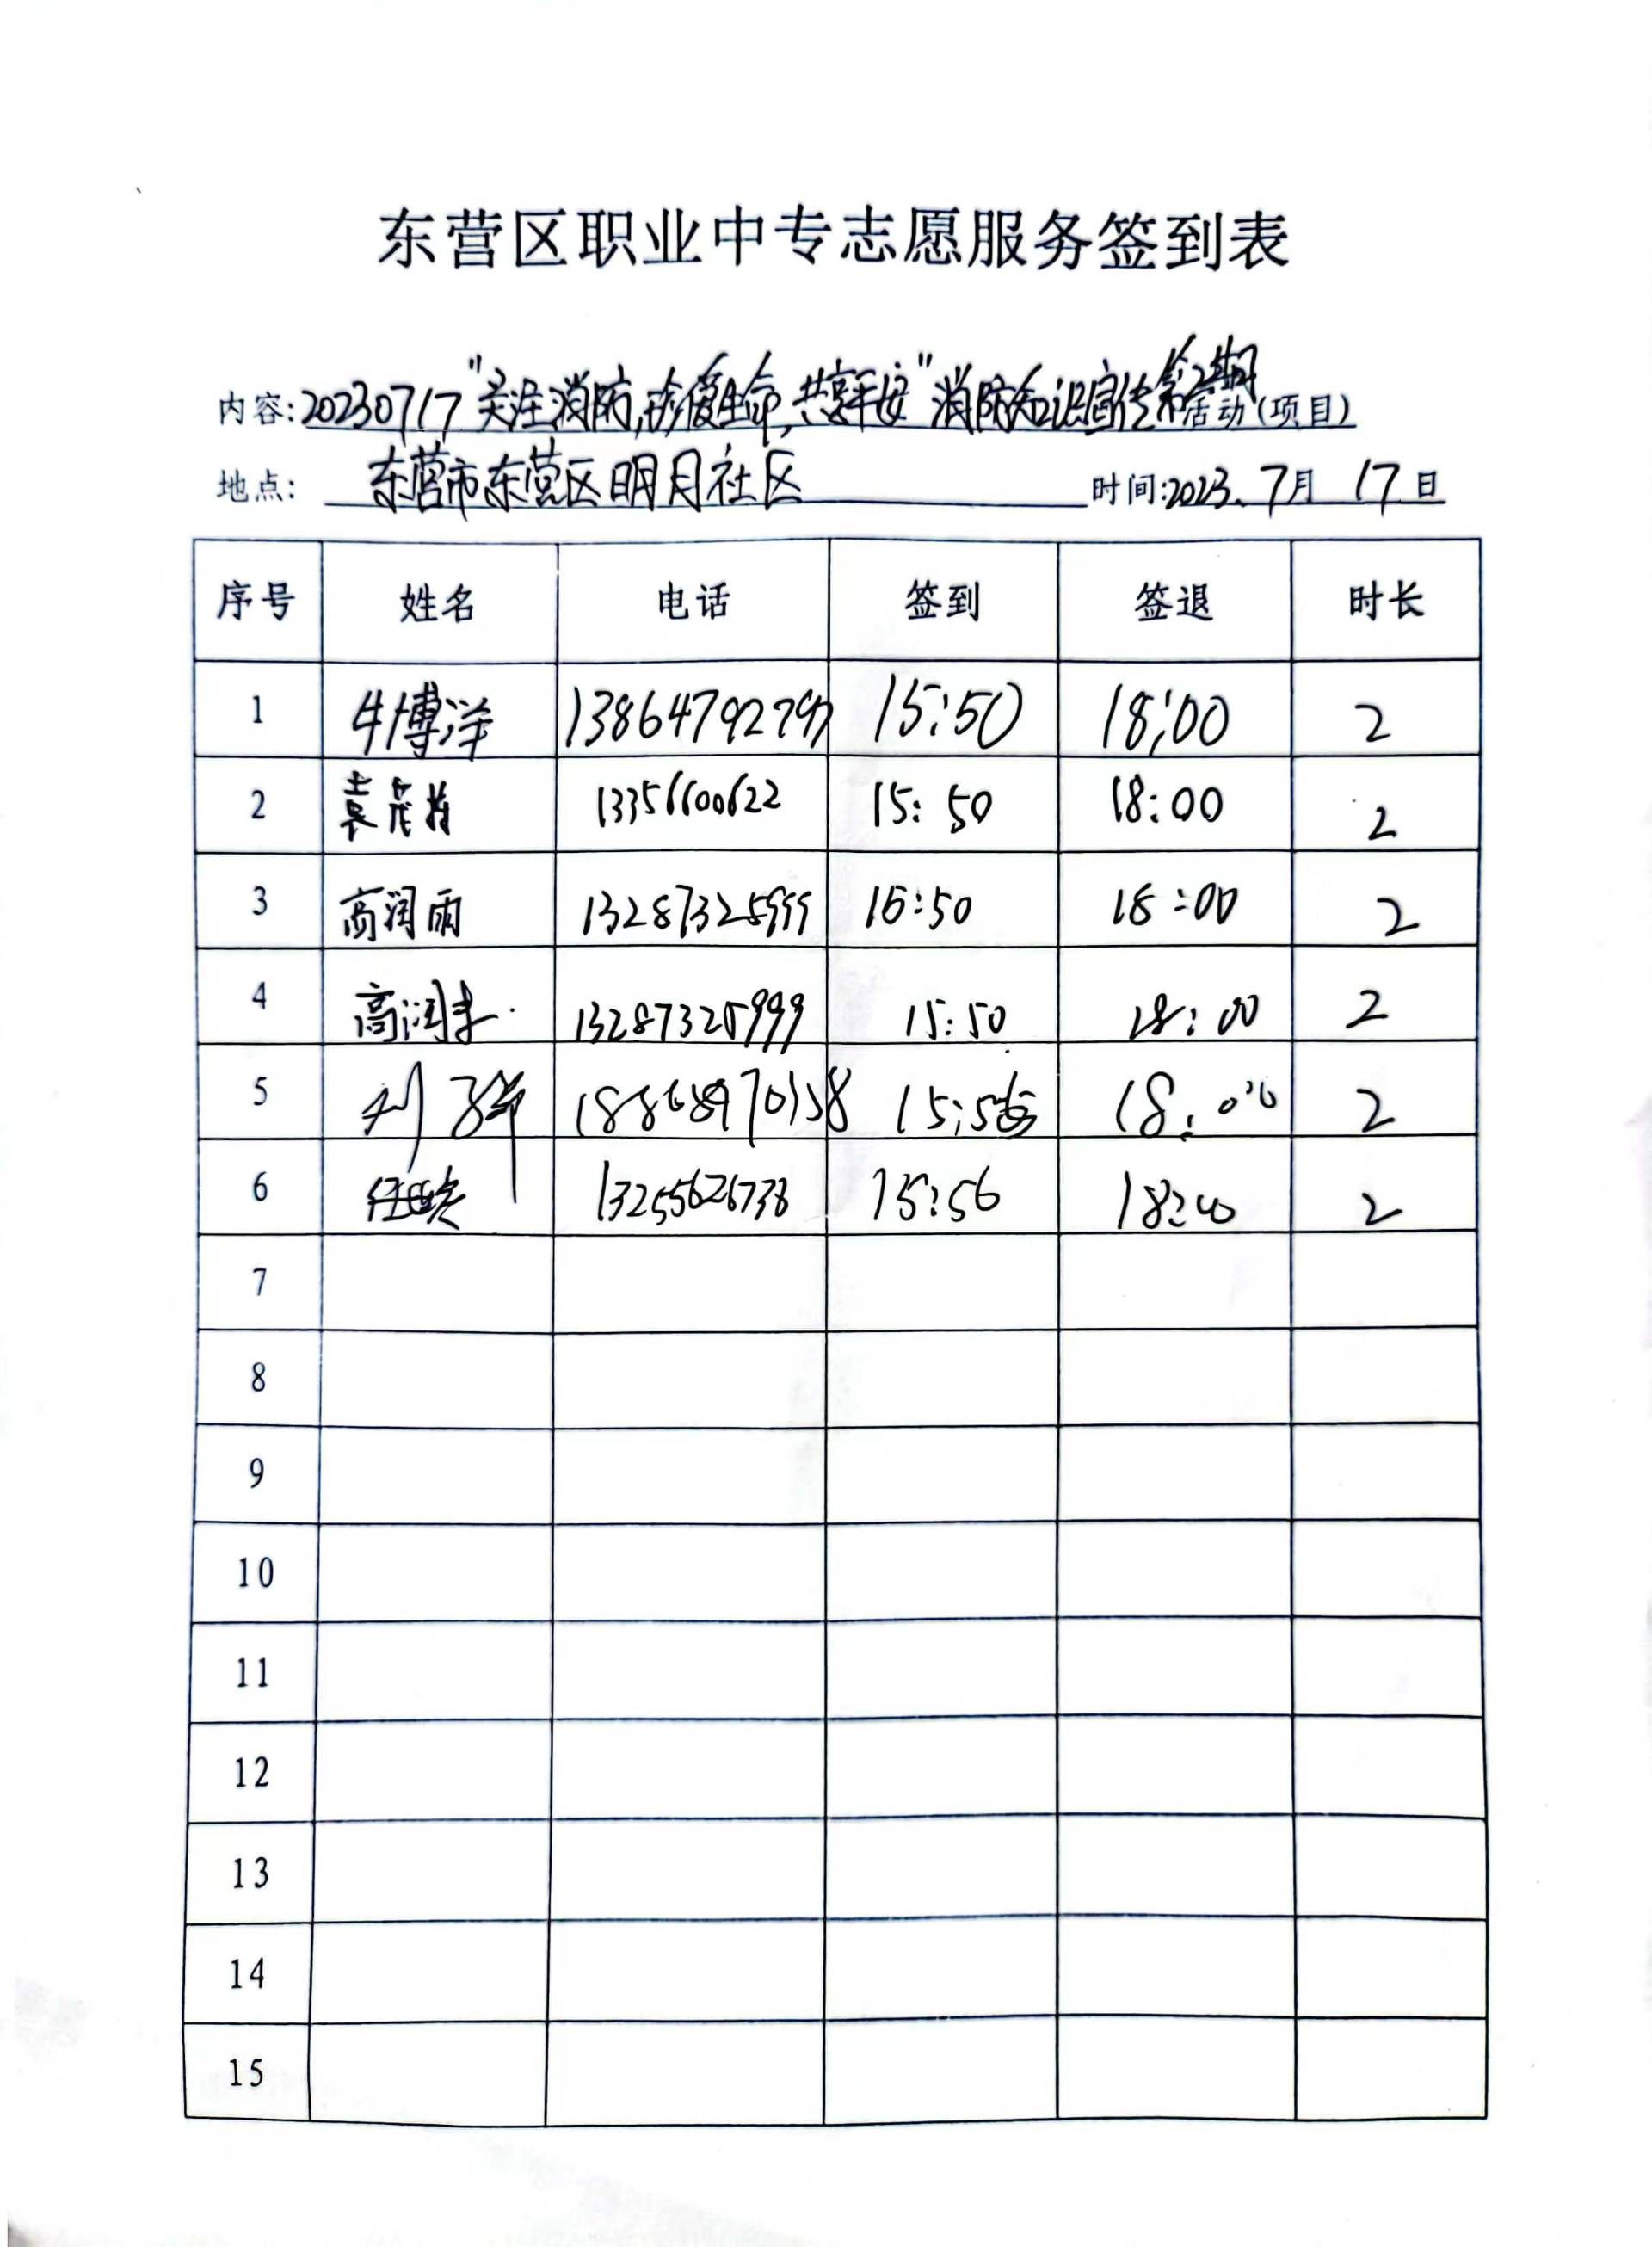 东营区职业中专志愿服务签到表
内容:20230717"关注消防,珍爱生命,共享平安"消防知识宣传第2期活动(项目)
地点: 东营市东营区明月社区 时间:2023.7月17日
序号 姓名 电话 签到 签退 时长
1 牛博洋 13864792797 15:50 18:00 2
2 袁茂 13356600622 15:50 18:00 2
3 高润雨 13287325999 15:50 18:00 2
4 高润 13287325999 15:50 18:00 2
5 15:56 18:00 2
6 任 13255626738 15:56 18:00 2
7
8
9
10
11
12
13
14
15